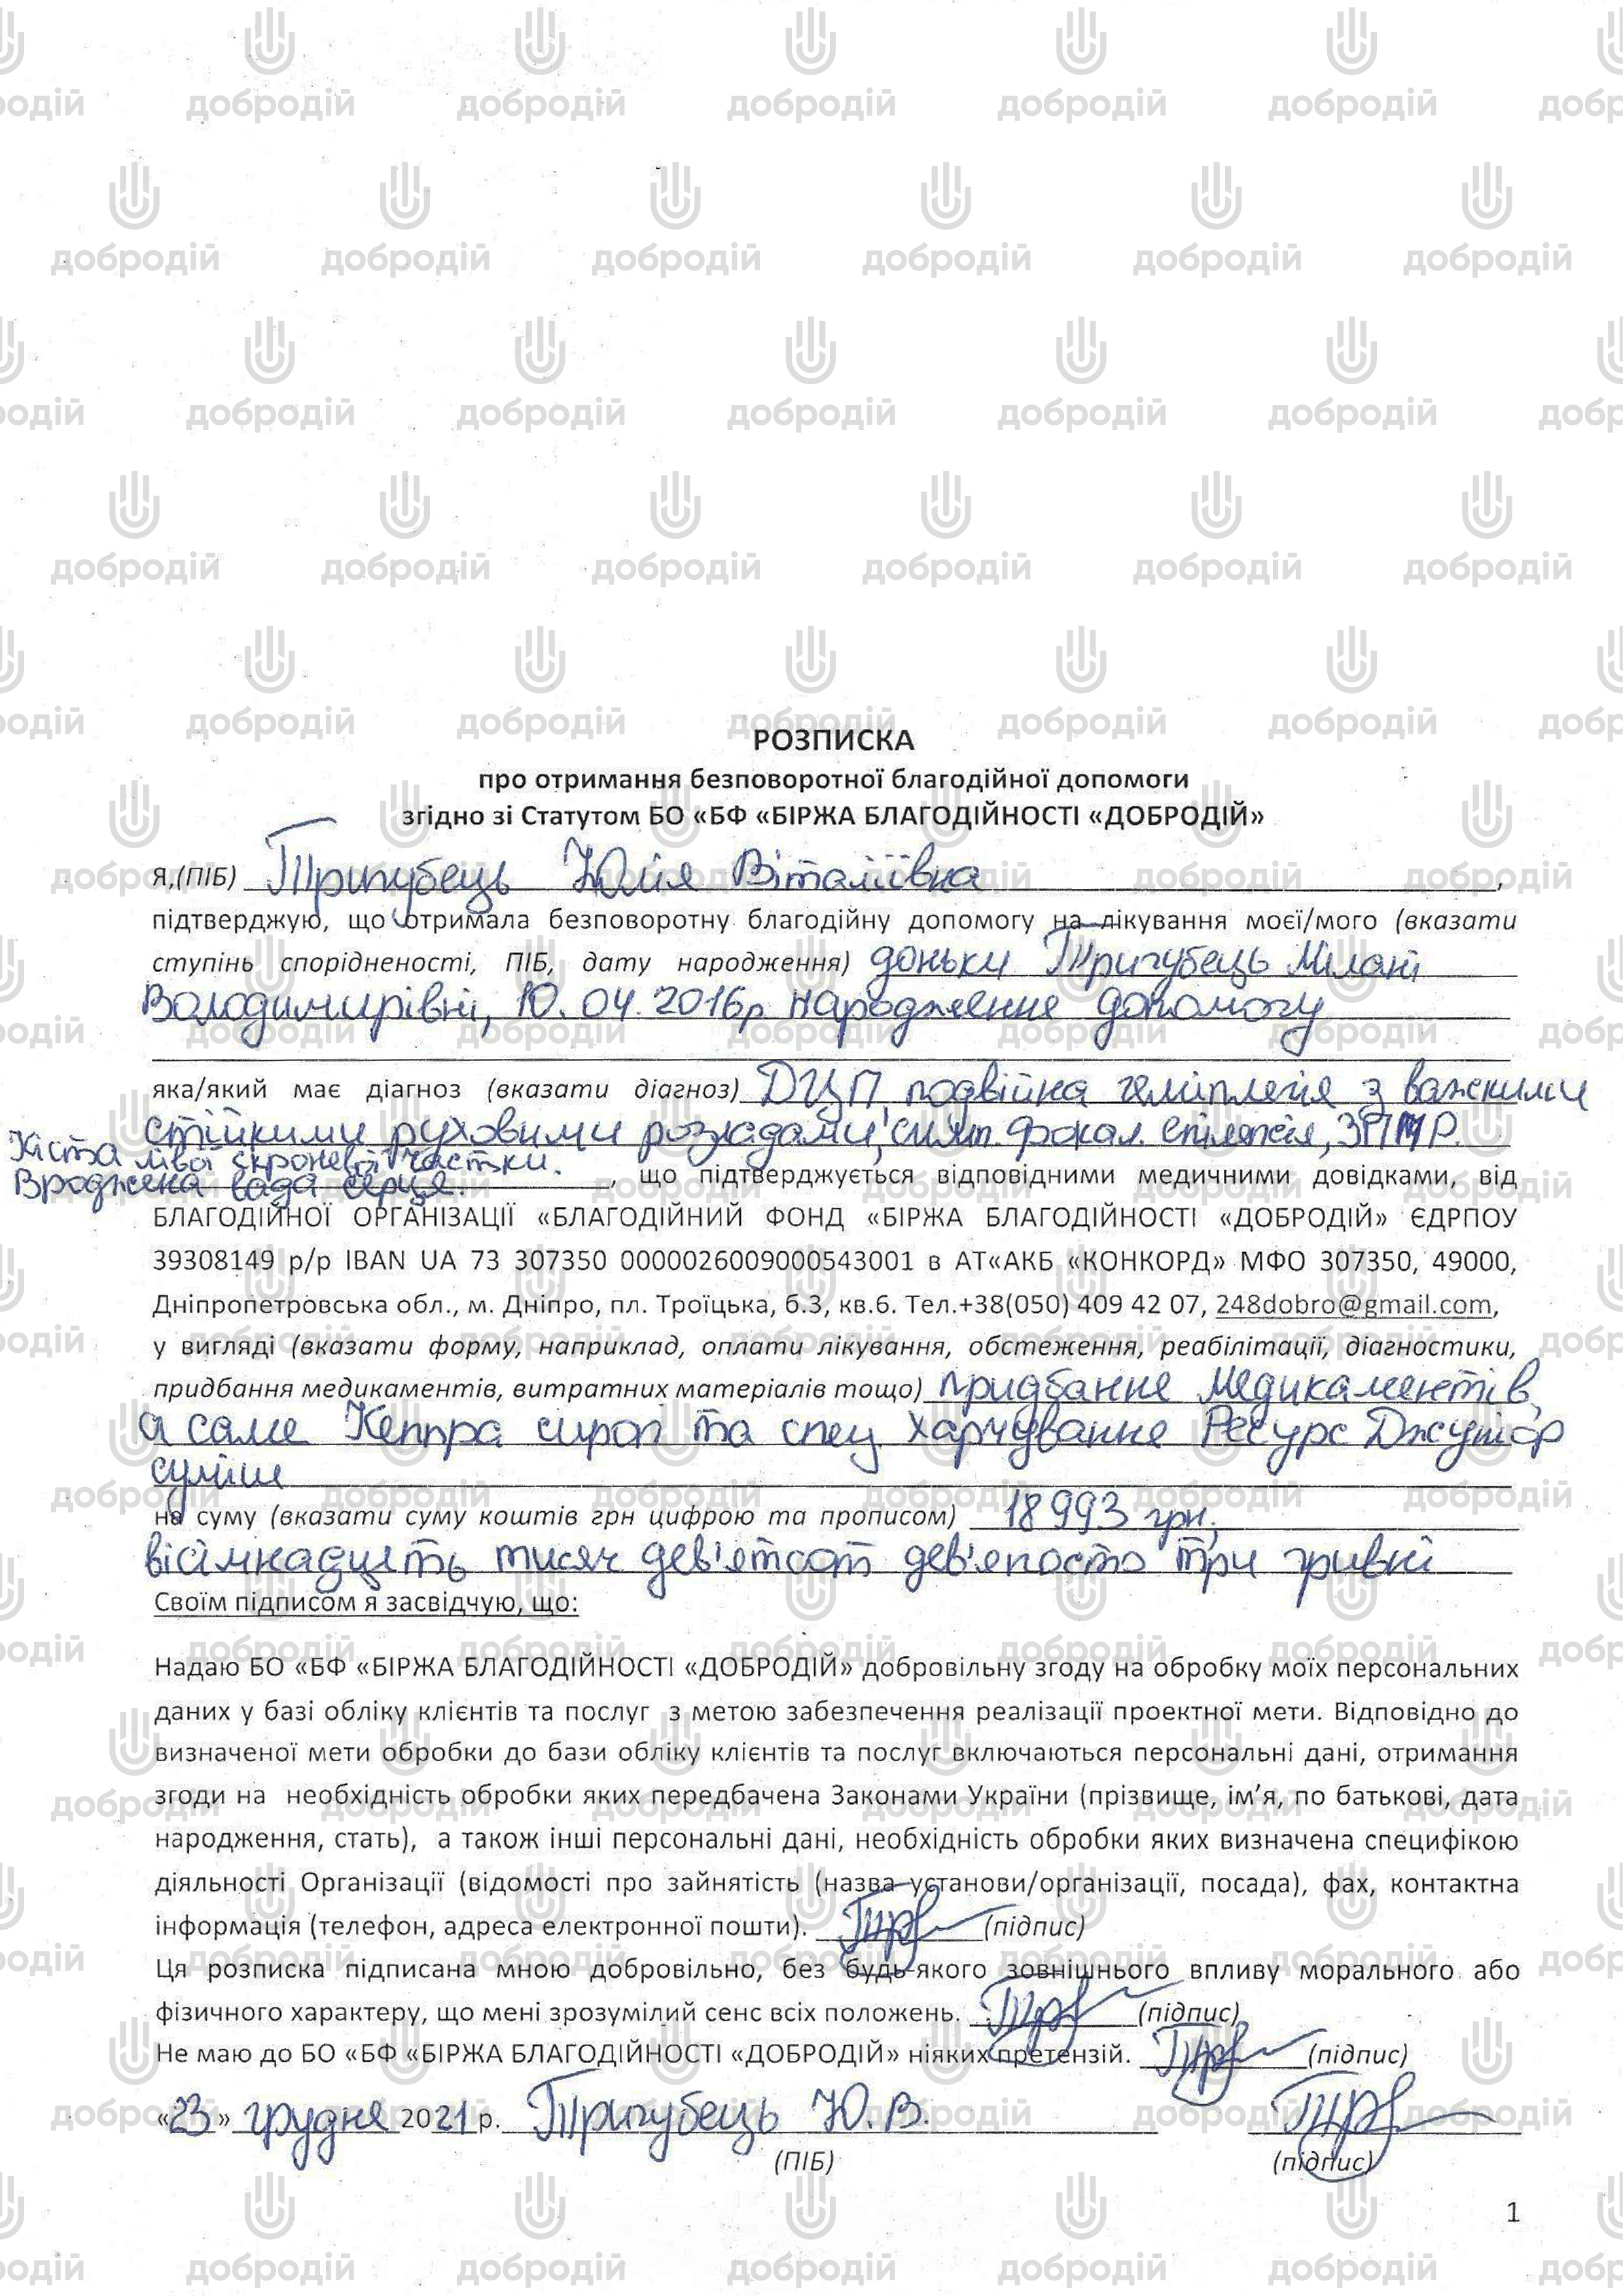 РОЗПИСКА
про отримання безповоротної благодійної допомоги
згідно зі Статутом БО «БФ «БІРЖА БЛАГОДІЙНОСТІ «ДОБРОДІЙ»
Я,(ПІБ) Тригубець Юлія Віталіївна,
підтверджую, що отримала безповоротну благодійну допомогу на лікування моєї/мого (вказати
ступінь спорідненості, ПІБ, дату народження) доньки Тригубець Мілані
Володимирівні, 10.04.2016р народження допомогу
яка/який має діагноз (вказати діагноз) ДЦП подвійна геміплегія з важкими
стійкими руховими розладами, симп. фокал. епілепсія, ЗПМР.
Кіста лівої скроневої частки.
Вроджена вада серця., що підтверджується відповідними медичними довідками, від
БЛАГОДІЙНОЇ ОРГАНІЗАЦІЇ «БЛАГОДІЙНИЙ ФОНД «БІРЖА БЛАГОДІЙНОСТІ «ДОБРОДІЙ» ЄДРПОУ
39308149 р/р IBAN UA 73 307350 0000026009000543001 в АТ«АКБ «КОНКОРД» МФО 307350, 49000,
Дніпропетровська обл., м. Дніпро, пл. Троїцька, б.3, кв.6. Тел.+38(050) 409 42 07, 248dobro@gmail.com,
у вигляді (вказати форму, наприклад, оплати лікування, обстеження, реабілітації, діагностики,
придбання медикаментів, витратних матеріалів тощо) придбання медикаментів,
а саме Кеппра сироп та спец харчування Ресурс Джуніор
суміш
на суму (вказати суму коштів грн цифрою та прописом) 18 993 грн,
вісімнадцять тисяч дев'ятсот дев'яносто три гривні
Своїм підписом я засвідчую, що:
Надаю БО «БФ «БІРЖА БЛАГОДІЙНОСТІ «ДОБРОДІЙ» добровільну згоду на обробку моїх персональних
даних у базі обліку клієнтів та послуг з метою забезпечення реалізації проектної мети. Відповідно до
визначеної мети обробки до бази обліку клієнтів та послуг включаються персональні дані, отримання
згоди на необхідність обробки яких передбачена Законами України (прізвище, ім'я, по батькові, дата
народження, стать), а також інші персональні дані, необхідність обробки яких визначена специфікою
діяльності Організації (відомості про зайнятість (назва установи/організації, посада), фах, контактна
інформація (телефон, адреса електронної пошти). (підпис)
Ця розписка підписана мною добровільно, без будь-якого зовнішнього впливу морального або
фізичного характеру, що мені зрозумілий сенс всіх положень. (підпис)
Не маю до БО «БФ «БІРЖА БЛАГОДІЙНОСТІ «ДОБРОДІЙ» ніяких претензій. (підпис)
«23» грудня 2021 р. Тригубець Ю.В.
(ПІБ) (підпис)
1